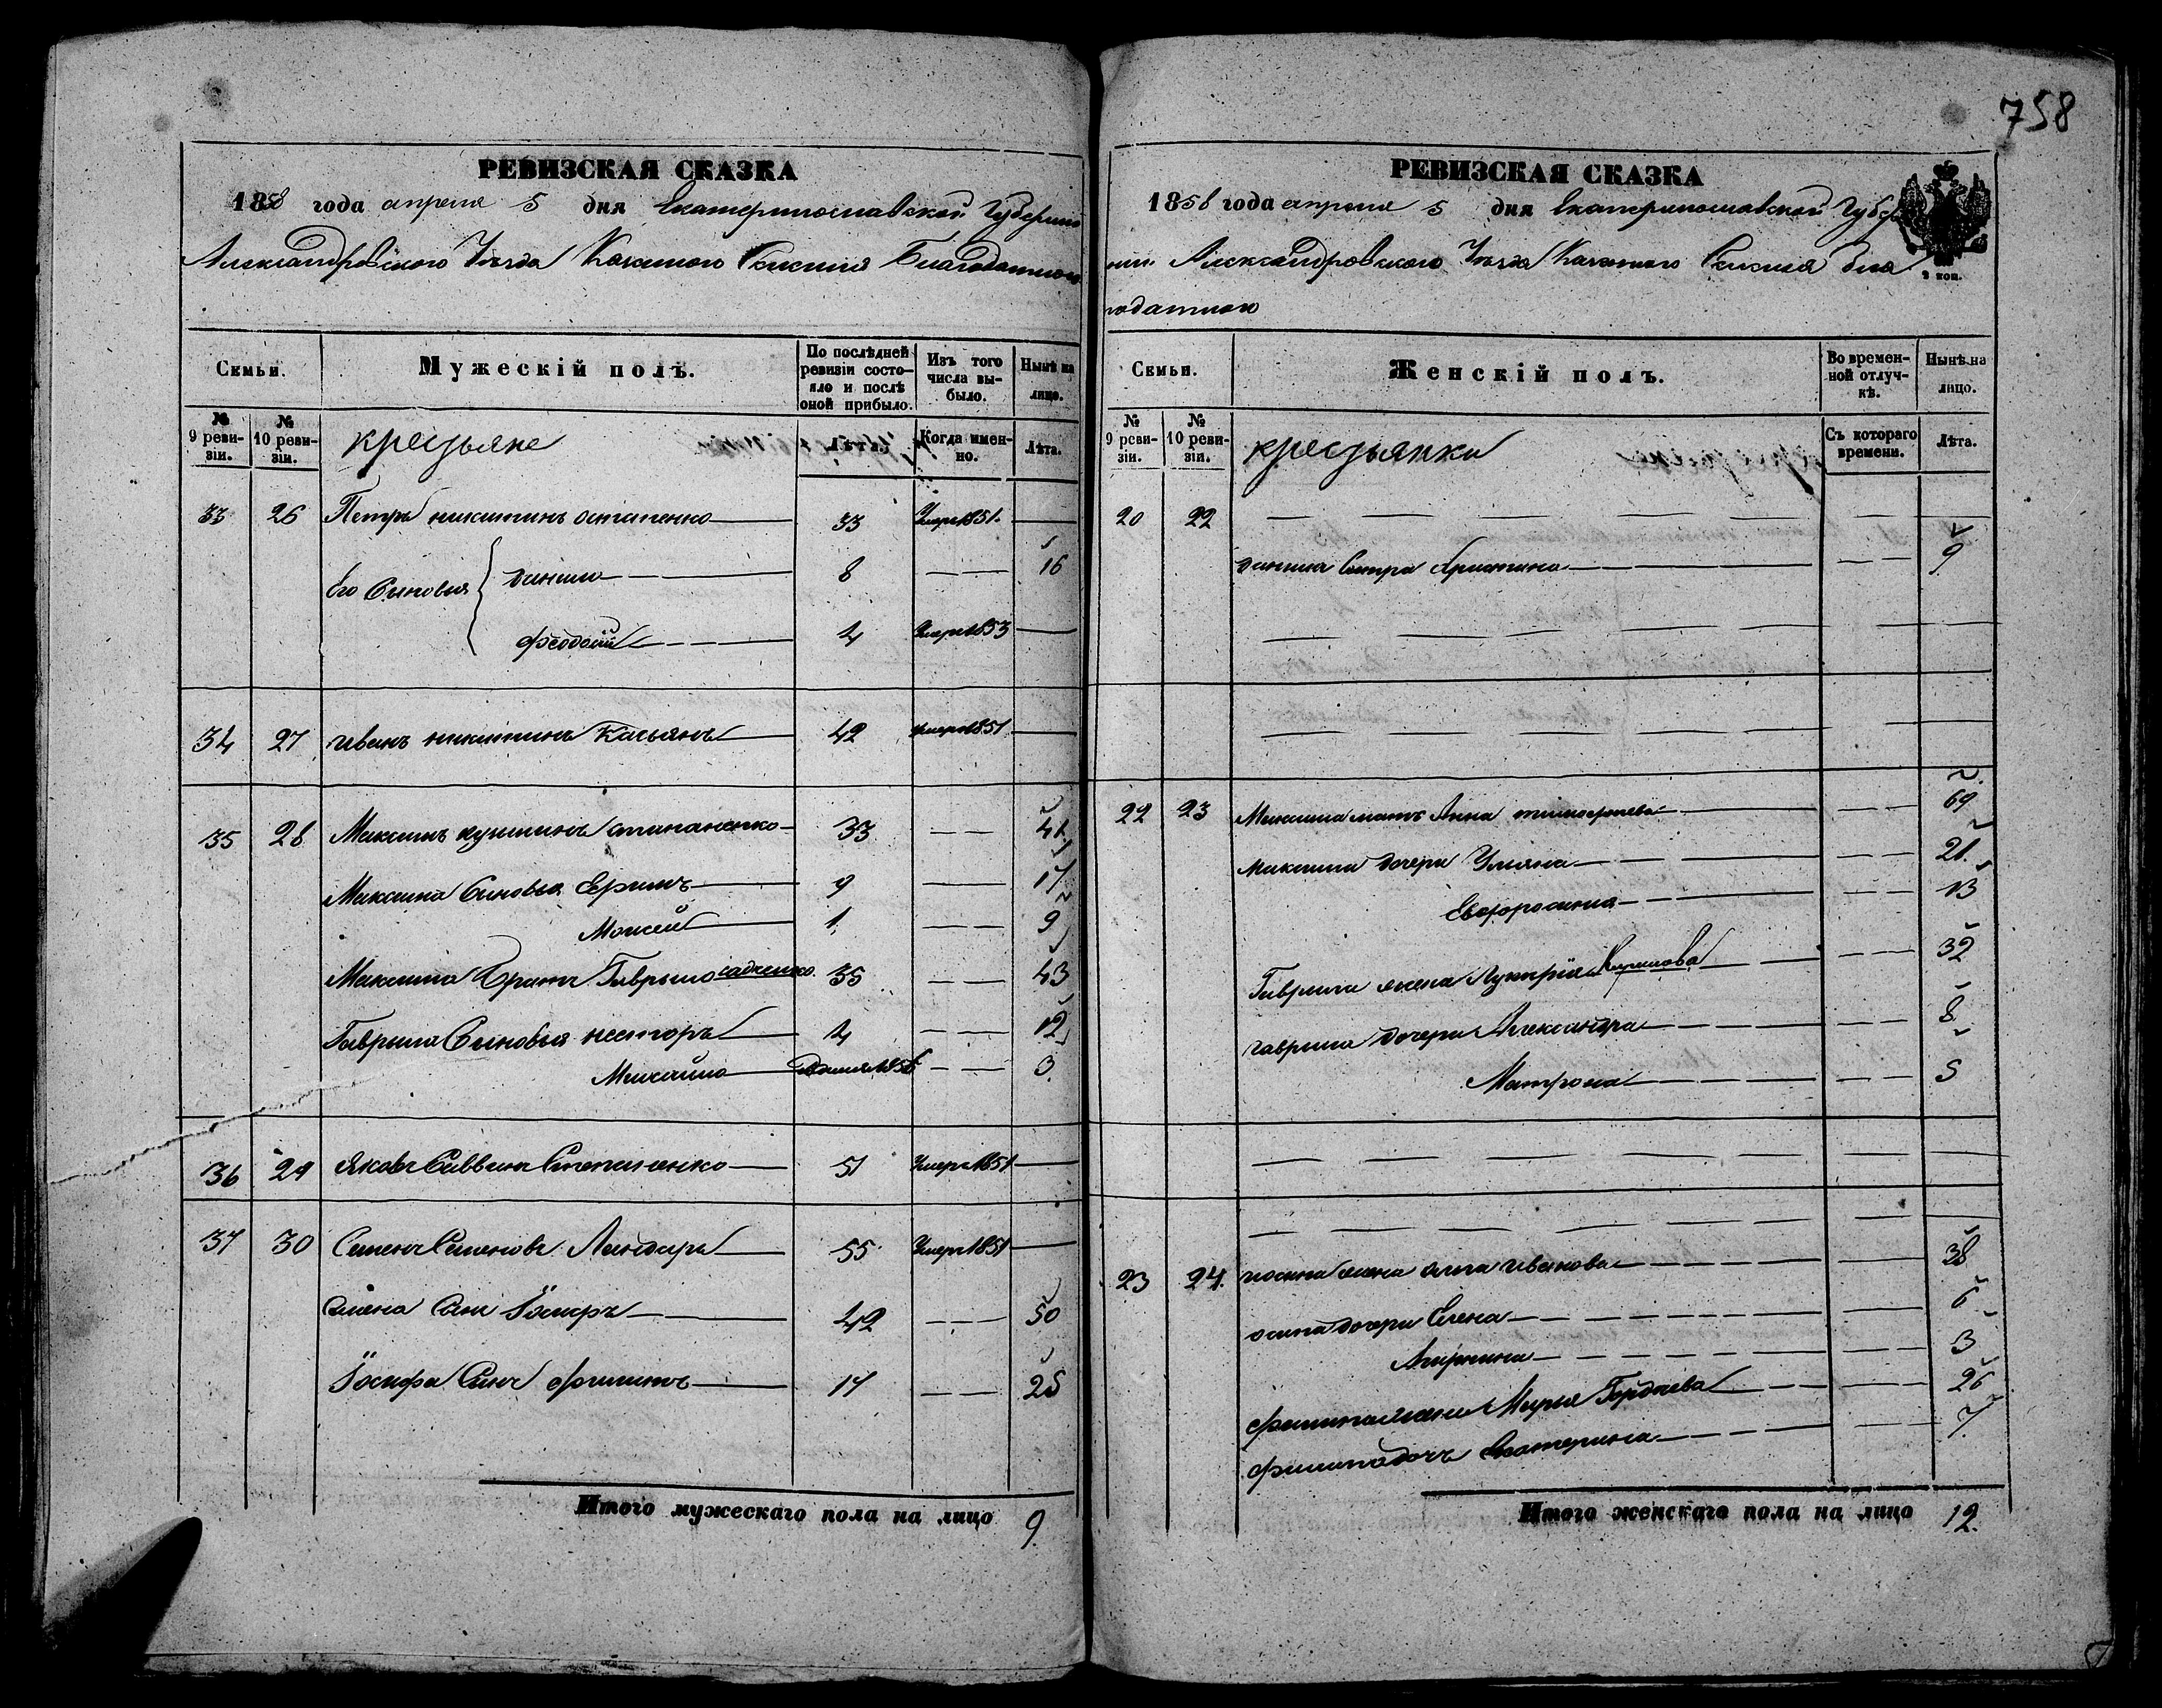 758
РЕВИЗСКАЯ СКАЗКА
1858 года апреля 5 дня Екатеринославской Губернии
Александровского Уезда Казенного Селения Благодатного
Семьи.
Мужескій полъ.
По послѣдней ревизіи состояло и послѣ оной прибыло.
Изъ того числа выбыло.
Нынѣ на лицо.
№ 9 ревизіи.
№ 10 ревизіи.
крестьяне
Лѣта.
Когда именно.
Лѣта.
33 26 Петръ никитинъ остапенко 33 Умеръ 1851
Его Сыновья данило 8 16
феодосій 4 Умеръ 1853
34 27 иванъ никитинъ Касьянъ 42 умеръ 1851
35 28 Максимъ кузминъ 33 41
Максима Сыновья Ефимъ 9 17
Моисей 1 9
Максима братъ Гаврыло садченко 35 43
Гаврыла Сыновья несторъ 4 12
Михайло 3
36 29 Яковъ Саввинъ Степаненко 51 Умеръ 1851
37 30 Семенъ Семеновъ Лендаръ 55 Умеръ 1851
Семена Сынъ Іосифъ 42 50
Іосифа Сынъ филипъ 17 25
Итого мужескаго пола на лицо 9.
РЕВИЗСКАЯ СКАЗКА
1858 года апреля 5 дня Екатеринославской Губер
нии Александровского Уезда Казенного Селения бла
годатного
2 коп.
Семьи.
Женскій полъ.
Во временной отлучкѣ.
Нынѣ на лицо.
№ 9 ревизіи.
№ 10 ревизіи.
крестьянки
Съ котораго времени.
Лѣта.
20 22
данила Сестра Христина 9
22 23 Максима мать Анна тимофеева 69
максима дочери Уляна 21
Евфросина 13
Гаврила жена Лукерія Кирилова 32
гаврила дочери Александра 8
Матрона 5
23 24. иосипа жена анна иванова 38
осипа дочери Елена 6
Агрипина 3
филипа жена Марья Гордеева 26
филипа дочь Екатерина 7.
Итого женскаго пола на лицо 12.